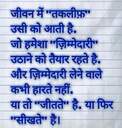 जीवन में "तकलीफ़"
उसी को आती है.
जो हमेशा "ज़िम्मेदारी"
उठाने को तैयार रहते है.
और ज़िम्मेदारी लेने वाले
कभी हारते नहीं.
या तो "जीतते" है. या फिर
"सीखते" है।